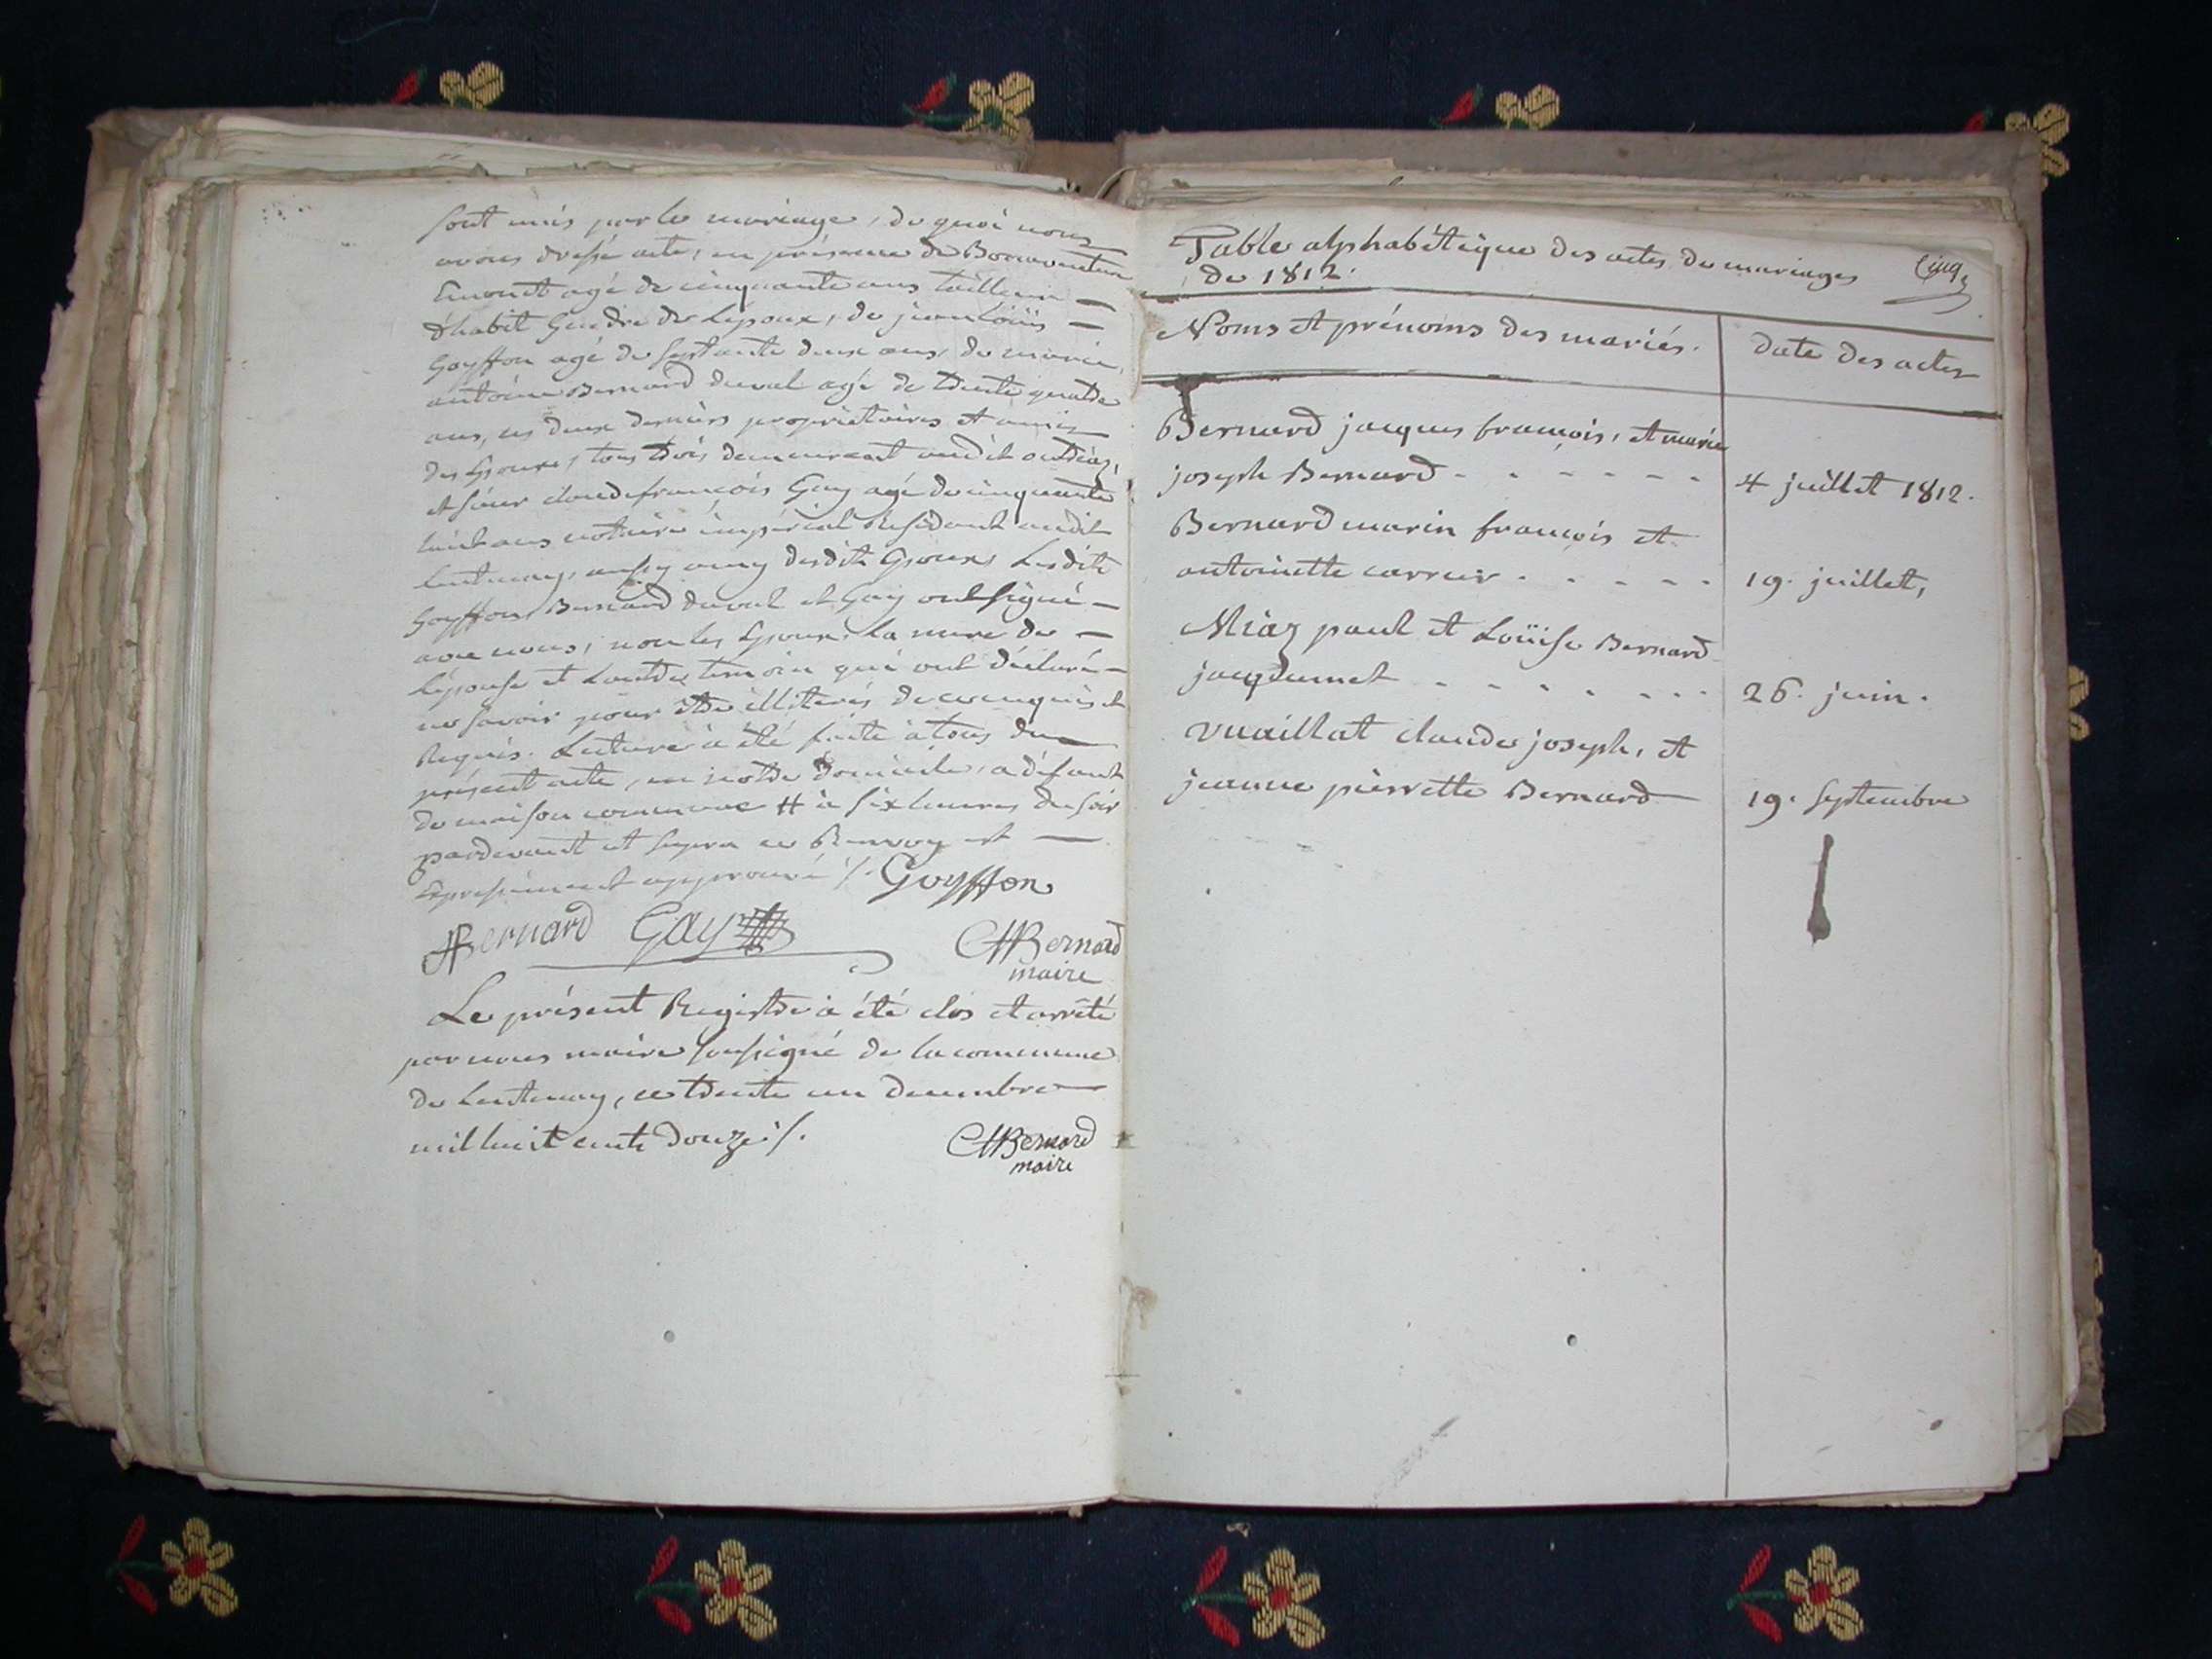 sont unis par le mariage, de quoi nous
avons dressé acte, en présence de Bonaventure
Emonet agé de cinquante ans tailleur
d'habit Gendre de Lepoux, de jean Loüis
Goyffon agé de septante deux ans, de marie
antoine Bernard duval agé de trente quatre
ans, ces deux derniers propriétaires et amis
des Epoux, tous trois demeurant audit
et sieur claude françois Gay agé de cinquante
huit ans notaire impérial Residant audit
Lentenay, aussy amy desdits Epoux, Lesdits
Goyffon, Bernard duval et Gay ont signé
avec nous, non les Epoux, la mere de
l'épouse et Lautre temoin qui ont déclaré
ne savoir pour être illiterés de ce enquis et
Requis. Lecture à été faite à tous du
présent acte, en notre domicile, a défaut
de maison commune # à six heures du soir
pardevant et supra ce Renvoy est
Expressément approuvé /. Goyffon
Bernard Gay Bernard
maire
Le présent Registre à été clos et arrêté
par nous maire soussigné de la commune
de Lentenay, ce trente un decembre
mil huit cent douze /. Bernard
maire
Table alphabétique des actes de mariages Cinq
de 1812.
Noms et prénoms des mariés. date des actes
Bernard jacques françois, et marie
joseph Bernard - - - - - - 4 juillet 1812.
Bernard marin françois et
antoinette carrier - - - - - 19. juillet,
Miaz paul et Loüise Bernard
jacquemet - - - - - - - 26. juin.
vuaillat claude joseph, et
jeanne pierrette Bernard 19. septembre